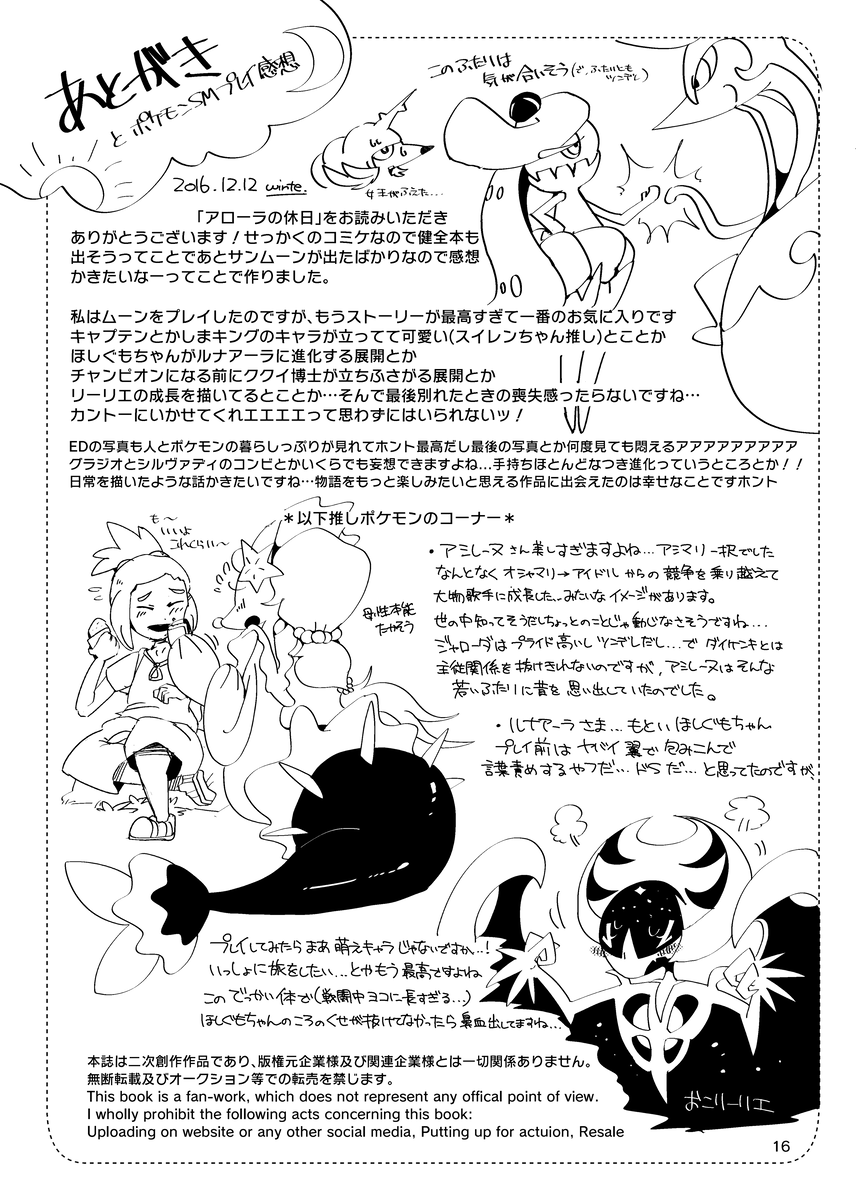 あとがき
とポケモンSMプレイ感想
2016.12.12 winte.
このふたりは
気が合いそう(で、ふたりとも
ツンデレ)
女王がふえた…
「アローラの休日」をお読みいただき
ありがとうございます!せっかくのコミケなので健全本も
出そうってことであとサンムーンが出たばかりなので感想
かきたいなーってことで作りました。
私はムーンをプレイしたのですが、もうストーリーが最高すぎて一番のお気に入りです
キャプテンとかしまキングのキャラが立ってて可愛い(スイレンちゃん推し)とことか
ほしぐもちゃんがルナアーラに進化する展開とか
チャンピオンになる前にククイ博士が立ちふさがる展開とか
リーリエの成長を描いてるとことか…そんで最後別れたときの喪失感ったらないですね…
カントーにいかせてくれエエエエって思わずにはいられないッ!
EDの写真も人とポケモンの暮らしっぷりが見れてホント最高だし最後の写真とか何度見ても悶えるアアアアアアアアア
グラジオとシルヴァディのコンビとかいくらでも妄想できますよね…手持ちほとんどなつき進化っていうところとか!!
日常を描いたような話かきたいですね…物語をもっと楽しみたいと思える作品に出会えたのは幸せなことですホント
*以下推しポケモンのコーナー*
も〜
いいよ
これくらい〜
母性本能
たかそう
・アシレーヌさん美しすぎますよね…アシマリ一択でした
なんとなくオシャマリ→アイドルからの競争を乗り越えて
大物歌手に成長した…みたいなイメージがあります。
世の中知ってそうだしちょっとのことじゃ動じなさそうですね…
ジャローダはプライド高いしツンデレだし…でダイケンキとは
主従関係を抜けきれないのですが、アシレーヌはそんな
若いふたりに昔を思い出していたのでした。
・ルナアーラさま…もといほしぐもちゃん
プレイ前はヤバイ翼で包みこんで
言葉責めするやつだ…ドSだ…と思ってたのですが
プレイしてみたらまあ萌えキャラじゃないですか…!
いっしょに旅をしたい…とかもう最高ですよね
このでっかい体が(戦闘中ヨコに長すぎる…)
ほしぐもちゃんのころのくせが抜けてなかったら鼻血出してますね…
おこリーリエ
本誌は二次創作作品であり、版権元企業様及び関連企業様とは一切関係ありません。
無断転載及びオークション等での転売を禁じます。
This book is a fan-work, which does not represent any offical point of view.
I wholly prohibit the following acts concerning this book:
Uploading on website or any other social media, Putting up for actuion, Resale
16